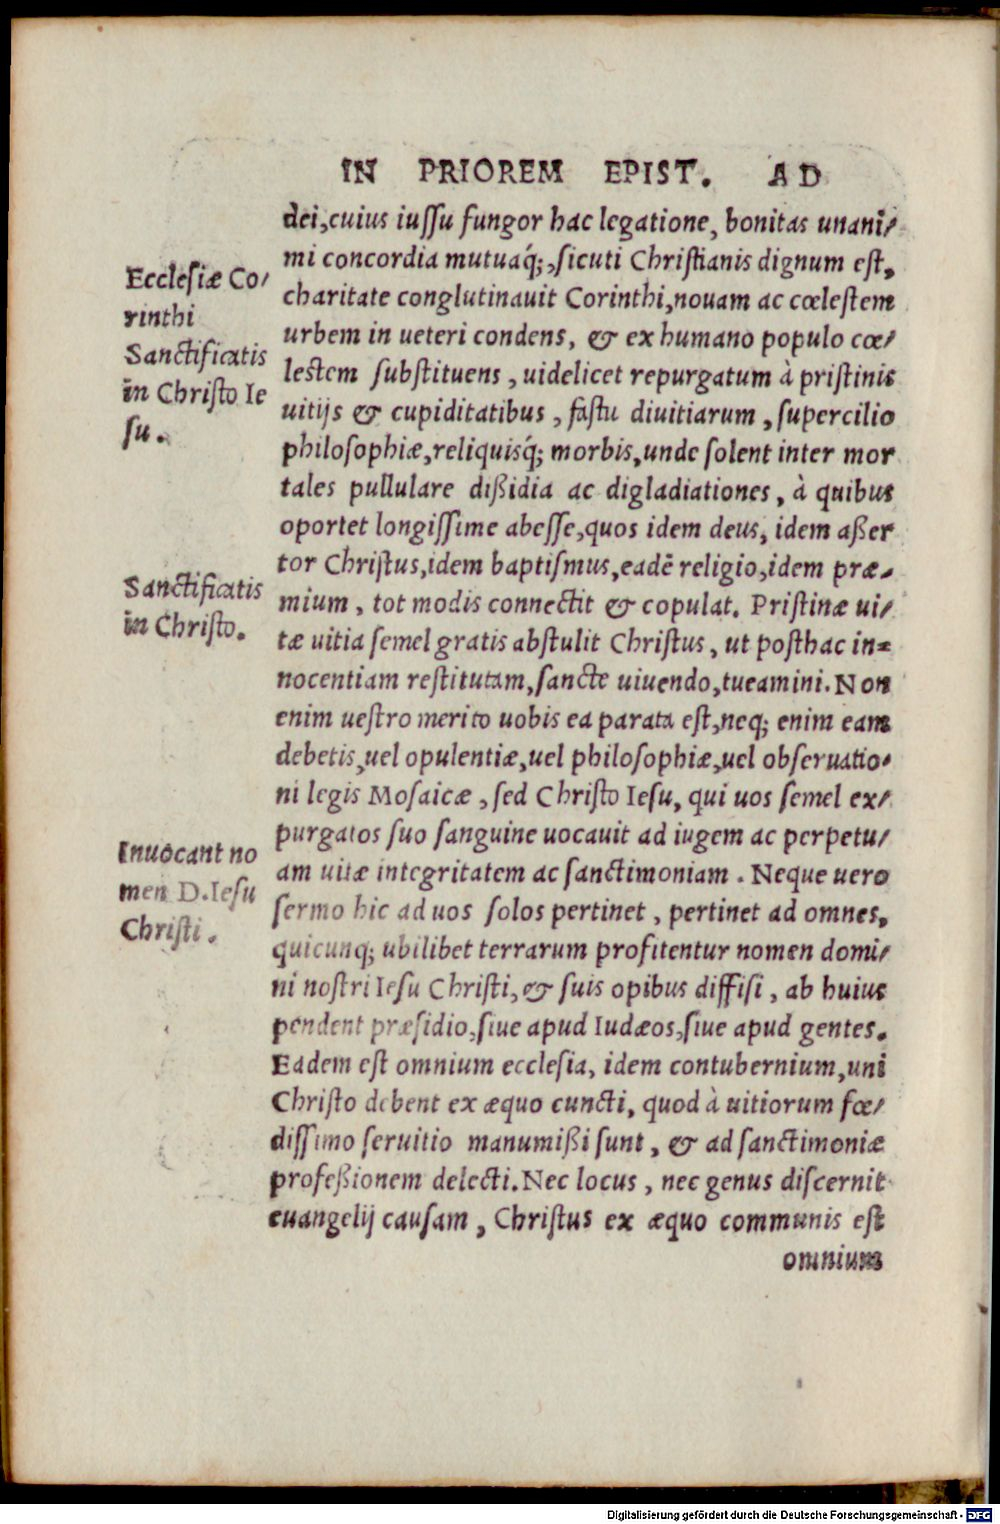 IN PRIOREM EPIST. AD
dei,cuius iussu fungor hac legatione, bonitas unani/
mi concordia mutuaq́;,sicuti Christianis dignum est,
charitate conglutinauit Corinthi,nouam ac cœlestem
urbem in ueteri condens, & ex humano populo cœ/
lestem substituens, uidelicet repurgatum à pristinis
uitijs & cupiditatibus, fastu diuitiarum, supercilio
philosophiæ,reliquisq́; morbis,unde solent inter mor
tales pullulare dißidia ac digladiationes, à quibus
oportet longissime abesse,quos idem deus, idem aßer
tor Christus,idem baptismus,eadē religio,idem præ-
mium, tot modis connectit & copulat. Pristinæ ui/
tæ uitia semel gratis abstulit Christus, ut posthac in=
nocentiam restitutam,sancte uiuendo,tueamini. Non
enim uestro merito uobis ea parata est,neq; enim eam
debetis,uel opulentiæ,uel philosophiæ,uel obseruatio-
ni legis Mosaicæ, sed Christo Iesu, qui uos semel ex/
purgatos suo sanguine uocauit ad iugem ac perpetu/
am uitæ integritatem ac sanctimoniam. Neque uero
sermo hic ad uos solos pertinet, pertinet ad omnes,
quicunq; ubilibet terrarum profitentur nomen domi/
ni nostri Iesu Christi,& suis opibus diffisi, ab huius
pendent præsidio,siue apud Iudæos,siue apud gentes.
Eadem est omnium ecclesia, idem contubernium,uni
Christo debent ex æquo cuncti, quod à uitiorum fœ/
dissimo seruitio manumißi sunt, & ad sanctimoniæ
profeßionem delecti. Nec locus, nec genus discernit
euangelij causam, Christus ex æquo communis est
omnium
Ecclesiæ Co/
rinthi
Sanctificatis
in Christo Ie
su.
Sanctificatis
in Christo.
Inuocant no
men D. Iesu
Christi.
Digitalisierung gefördert durch die Deutsche Forschungsgemeinschaft - DFG